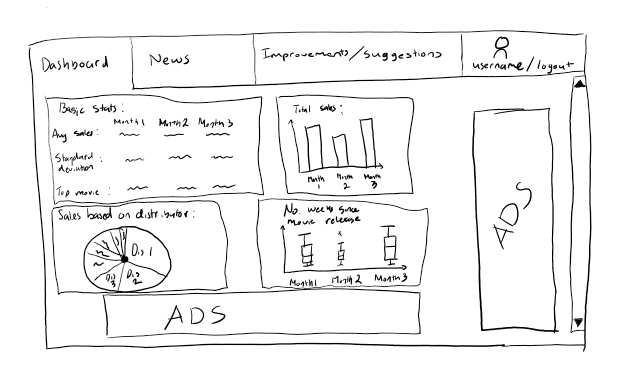 Dashboard
News
Improvements/suggestions
username/logout
Basic Stats:
Month 1 Month 2 Month 3
Avg sales:
Standard
deviation
:
Top movie:
Total sales:
Month
1
Month
2
Month
3
Sales based on distributor:
Dis 1
Dis
2
Dis
3
No. weeks since
movie release
Month 1 Month 2 Month 3
ADS
ADS